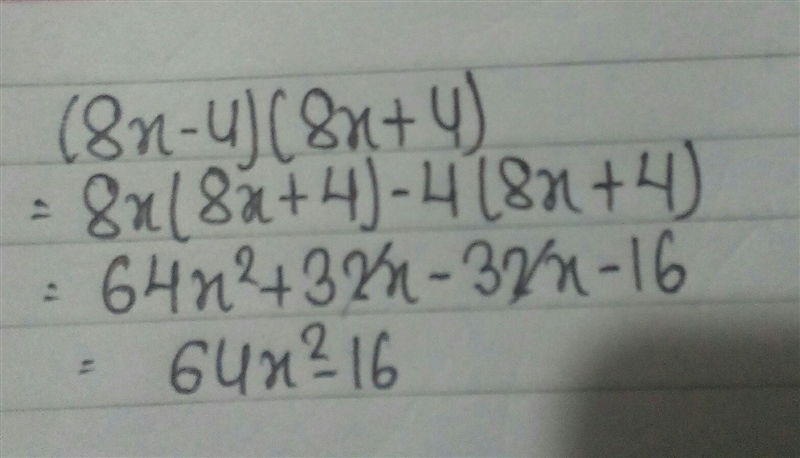 (8x-4)(8x+4)
= 8x(8x+4)-4(8x+4)
= 64x²+32x-32x-16
= 64x²-16